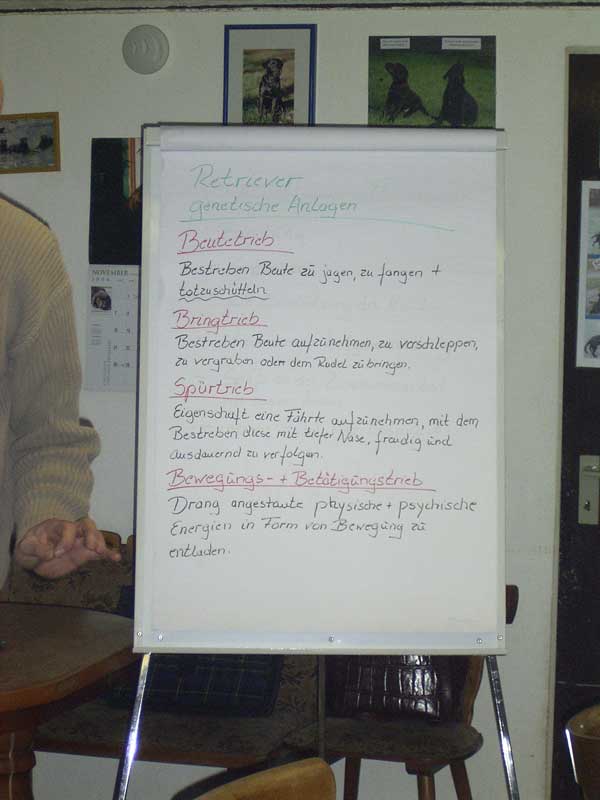 Retriever
genetische Anlagen
Beutetrieb
Bestreben Beute zu jagen, zu fangen +
totzuschütteln
Bringtrieb
Bestreben Beute aufzunehmen, zu verschleppen,
zu vergraben oder dem Rudel zu bringen.
Spürtrieb
Eigenschaft eine Fährte aufzunehmen, mit dem
Bestreben diese mit tiefer Nase, freudig und
ausdauernd zu verfolgen.
Bewegungs- + Betätigungstrieb
Drang angestaute physische + psychische
Energien in Form von Bewegung zu
entladen.
NOVEMBER